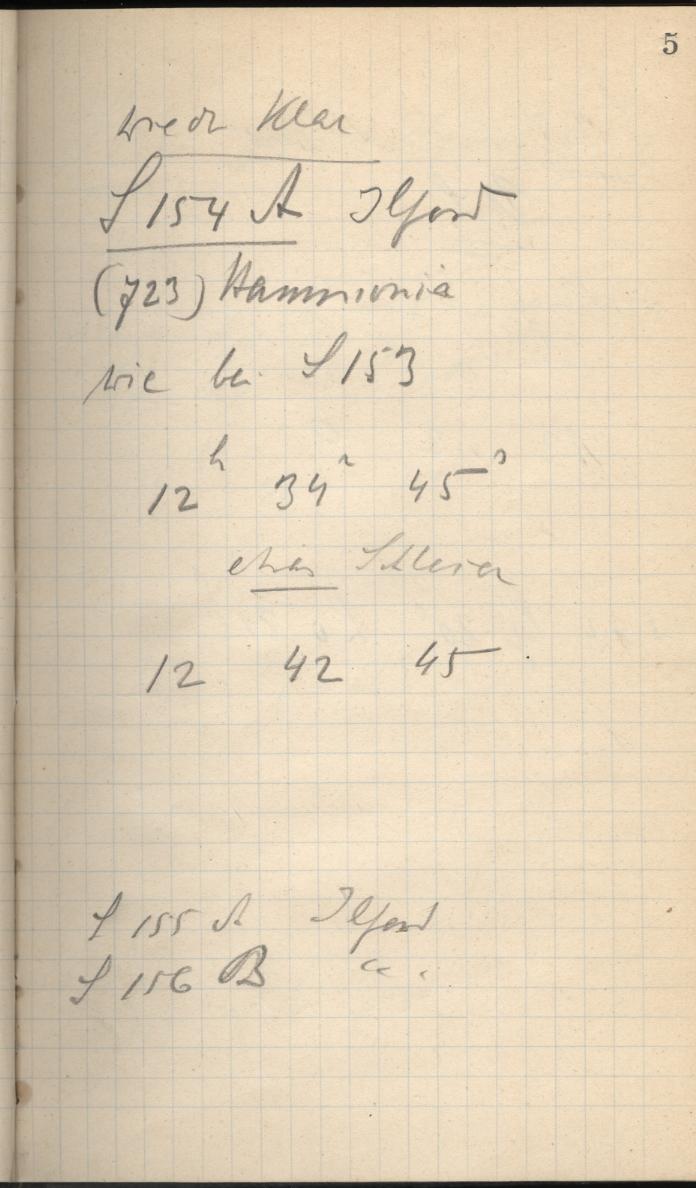 5
wieder klar
S 154 A Ilford
(723) Hammonia
wie bei S 153
12h 34m 45s
etwas Schleier
12 42 45
S 155 A Ilford
S 156 B " .